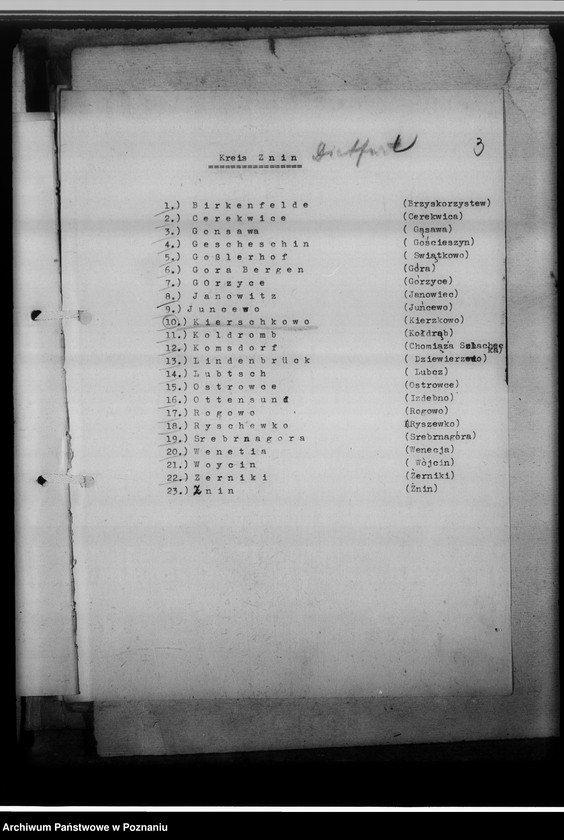 3
Kreis Znin Dietfurt
1.) Birkenfelde (Brzyskorzystew)
2.) Cerekwice (Cerekwica)
3.) Gonsawa ( Gąsawa)
4.) Gescheschin ( Gościeszyn)
5.) Goßlerhof ( Świątkowo)
6.) Gora Bergen (Góra)
7.) GOrzyce (Górzyce)
8.) Janowitz (Janowiec)
9.) Juncewo (Juńcewo)
10.) Kierschkowo (Kierzkowo)
11.) Koldromb (Kołdrąb)
12.) Komsdorf (Chomiąża Szlachecka)
13.) Lindenbrück ( Dziewierzewo)
14.) Lubtsch ( Lubcz)
15.) Ostrowce (Ostrowce)
16.) Ottensund (Izdebno)
17.) Rogowo (Rogowo)
18.) Ryschewko (Ryszewko)
19.) Srebrnagora (Srebrnagóra)
20.) Wenetia (Wenecja)
21.) Woycin ( Wójcin)
22.) Zerniki (Żerniki)
23.) Znin (Żnin)
Archiwum Państwowe w Poznaniu